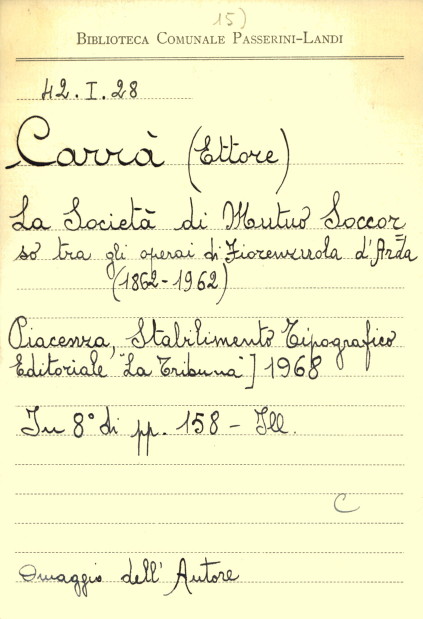 15)
BIBLIOTECA COMUNALE PASSERINI-LANDI
42.I.28
Carrà (Ettore)
La Società di Mutuo Soccor=
so tra gli operai di Fiorenzuola d'Arda
(1862-1962)
Piacenza, Stabilimento Tipografico
Editoriale "La Tribuna"] 1968
In 8° di pp. 158 - Ill.
C
Omaggio dell'Autore